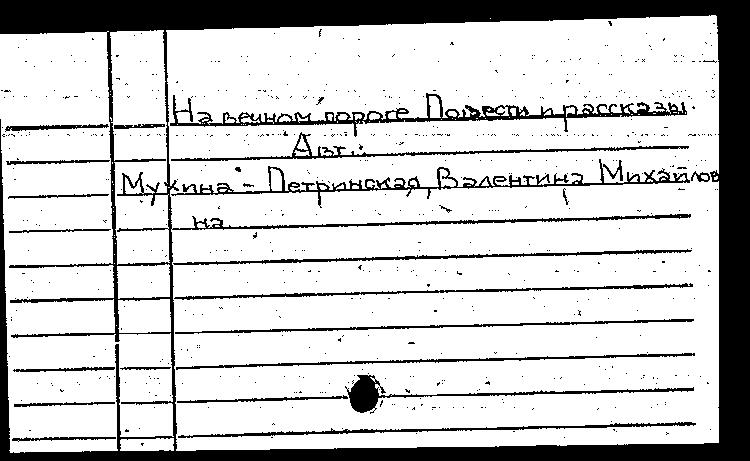 На вечном пороге Повести и рассказы.
Авт.:
Мухина - Петринская, Валентина Михайлов
на.